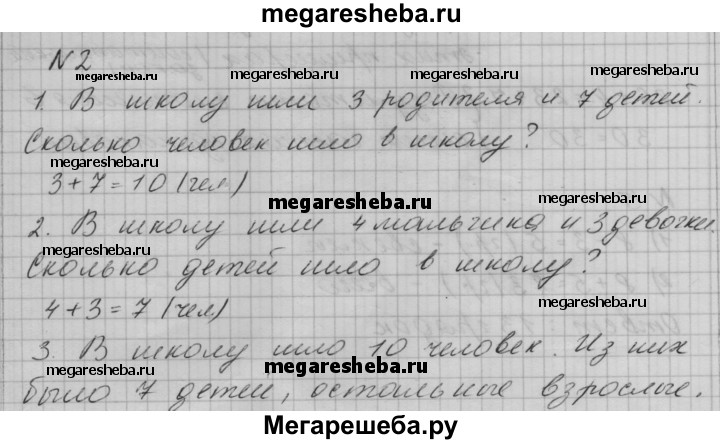 megaresheba.ru
N2
megaresheba.ru megaresheba.ru megaresheba.ru
1. В школу шли 3 родителя и 7 детей.
Сколько человек шло в школу?
megaresheba.ru megaresheba.ru
3+7=10 (чел.)
megaresheba.ru
2. В школу шли 4 мальчика и 3 девочки.
megaresheba.ru megaresheba.ru
Сколько детей шло в школу?
megaresheba.ru
4+3=7 (чел.)
megaresheba.ru
3. В школу шло 10 человек. Из них
megaresheba.ru megaresheba.ru
было 7 детей, остальные взрослые.
megaresheba.ru
Мегарешеба.ру